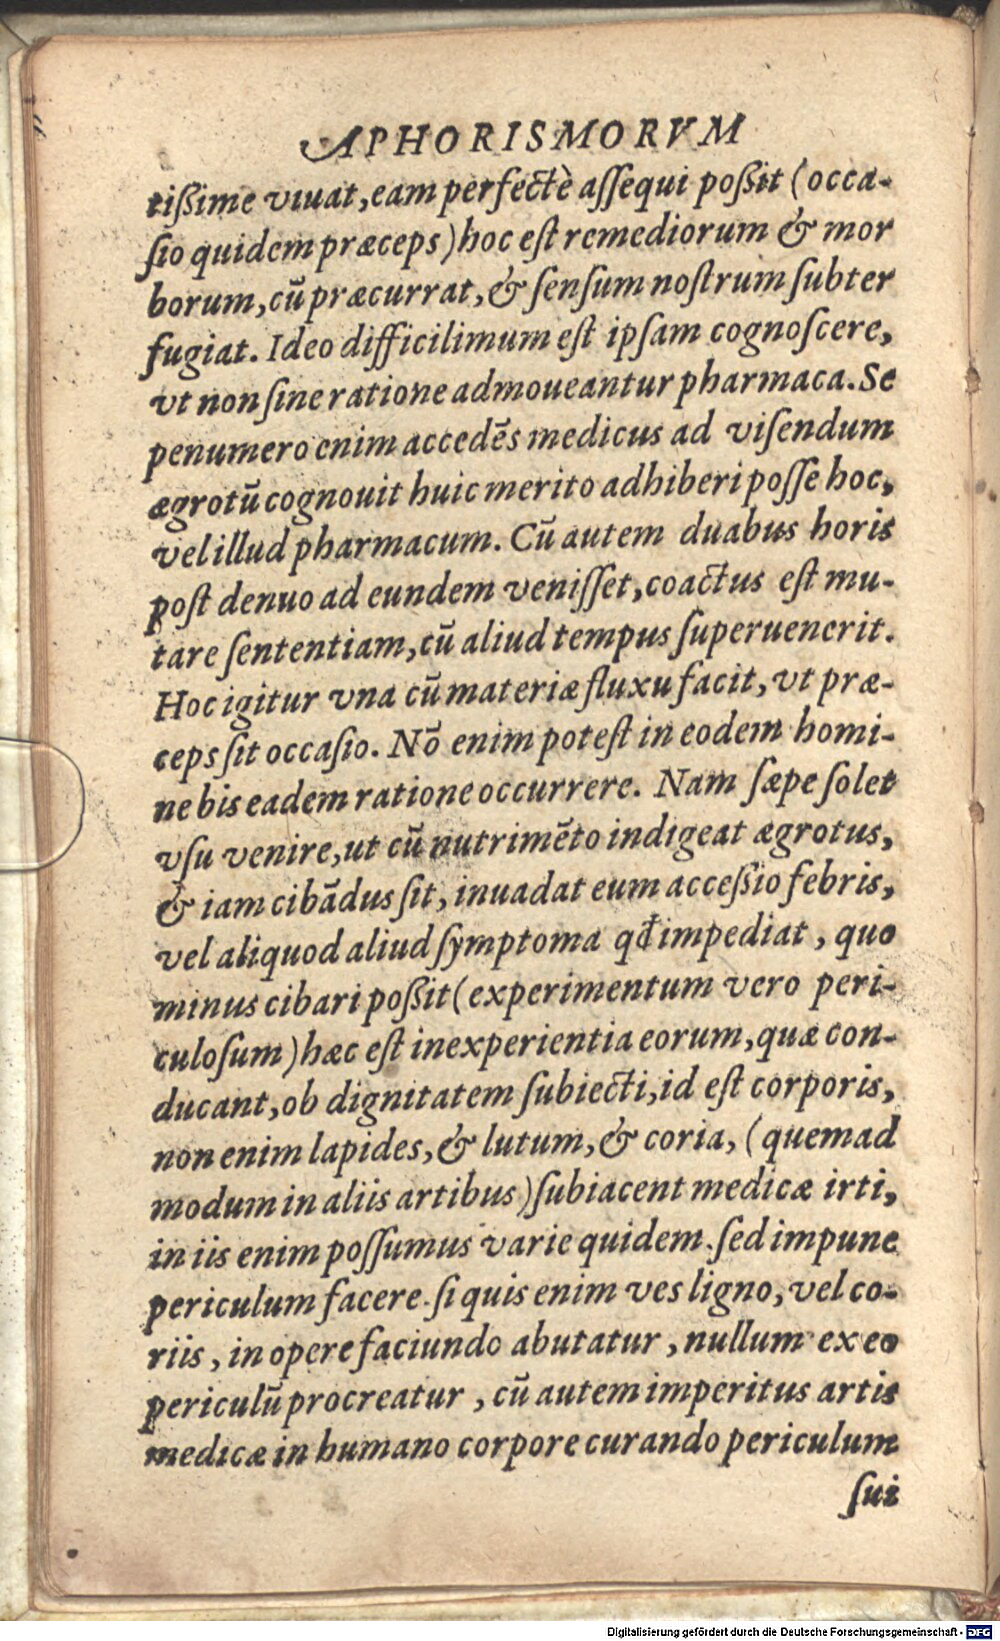 APHORISMORVM
tißime viuat, eam perfectè aſſequi poßit (occa-
ſio quidem præceps) hoc eſt remediorum & mor
borum, cū præcurrat, & ſenſum noſtrum ſubter
fugiat. Ideo difficilimum eſt ipſam cognoſcere,
vt non ſine ratione admoueantur pharmaca. Se
penumero enim accedēs medicus ad viſendum
ægrotū cognouit huic merito adhiberi poſſe hoc,
vel illud pharmacum. Cū autem duabus horis
poſt denuo ad eundem veniſſet, coactus eſt mu-
tare ſententiam, cū aliud tempus ſuperuenerit.
Hoc igitur vna cū materiæ fluxu facit, vt præ-
ceps ſit occaſio. Nō enim poteſt in eodem homi-
ne bis eadem ratione occurrere. Nam ſæpe ſolet
vſu venire, ut cū nutrimēto indigeat ægrotus,
& iam cibādus ſit, inuadat eum acceßio febris,
vel aliquod aliud ſymptoma qđ impediat, quo
minus cibari poßit (experimentum vero peri-
culoſum) hæc eſt inexperientia eorum, quæ con-
ducant, ob dignitatem ſubiecti, id eſt corporis,
non enim lapides, & lutum, & coria, (quemad
modum in aliis artibus) ſubiacent medicæ irti,
in iis enim poſſumus varie quidem. ſed impune
periculum facere. ſi quis enim ves ligno, vel co-
riis, in opere faciundo abutatur, nullum ex eo
periculū procreatur, cū autem imperitus artis
medicæ in humano corpore curando periculum
ſui
Digitalisierung gefördert durch die Deutsche Forschungsgemeinschaft - DFG